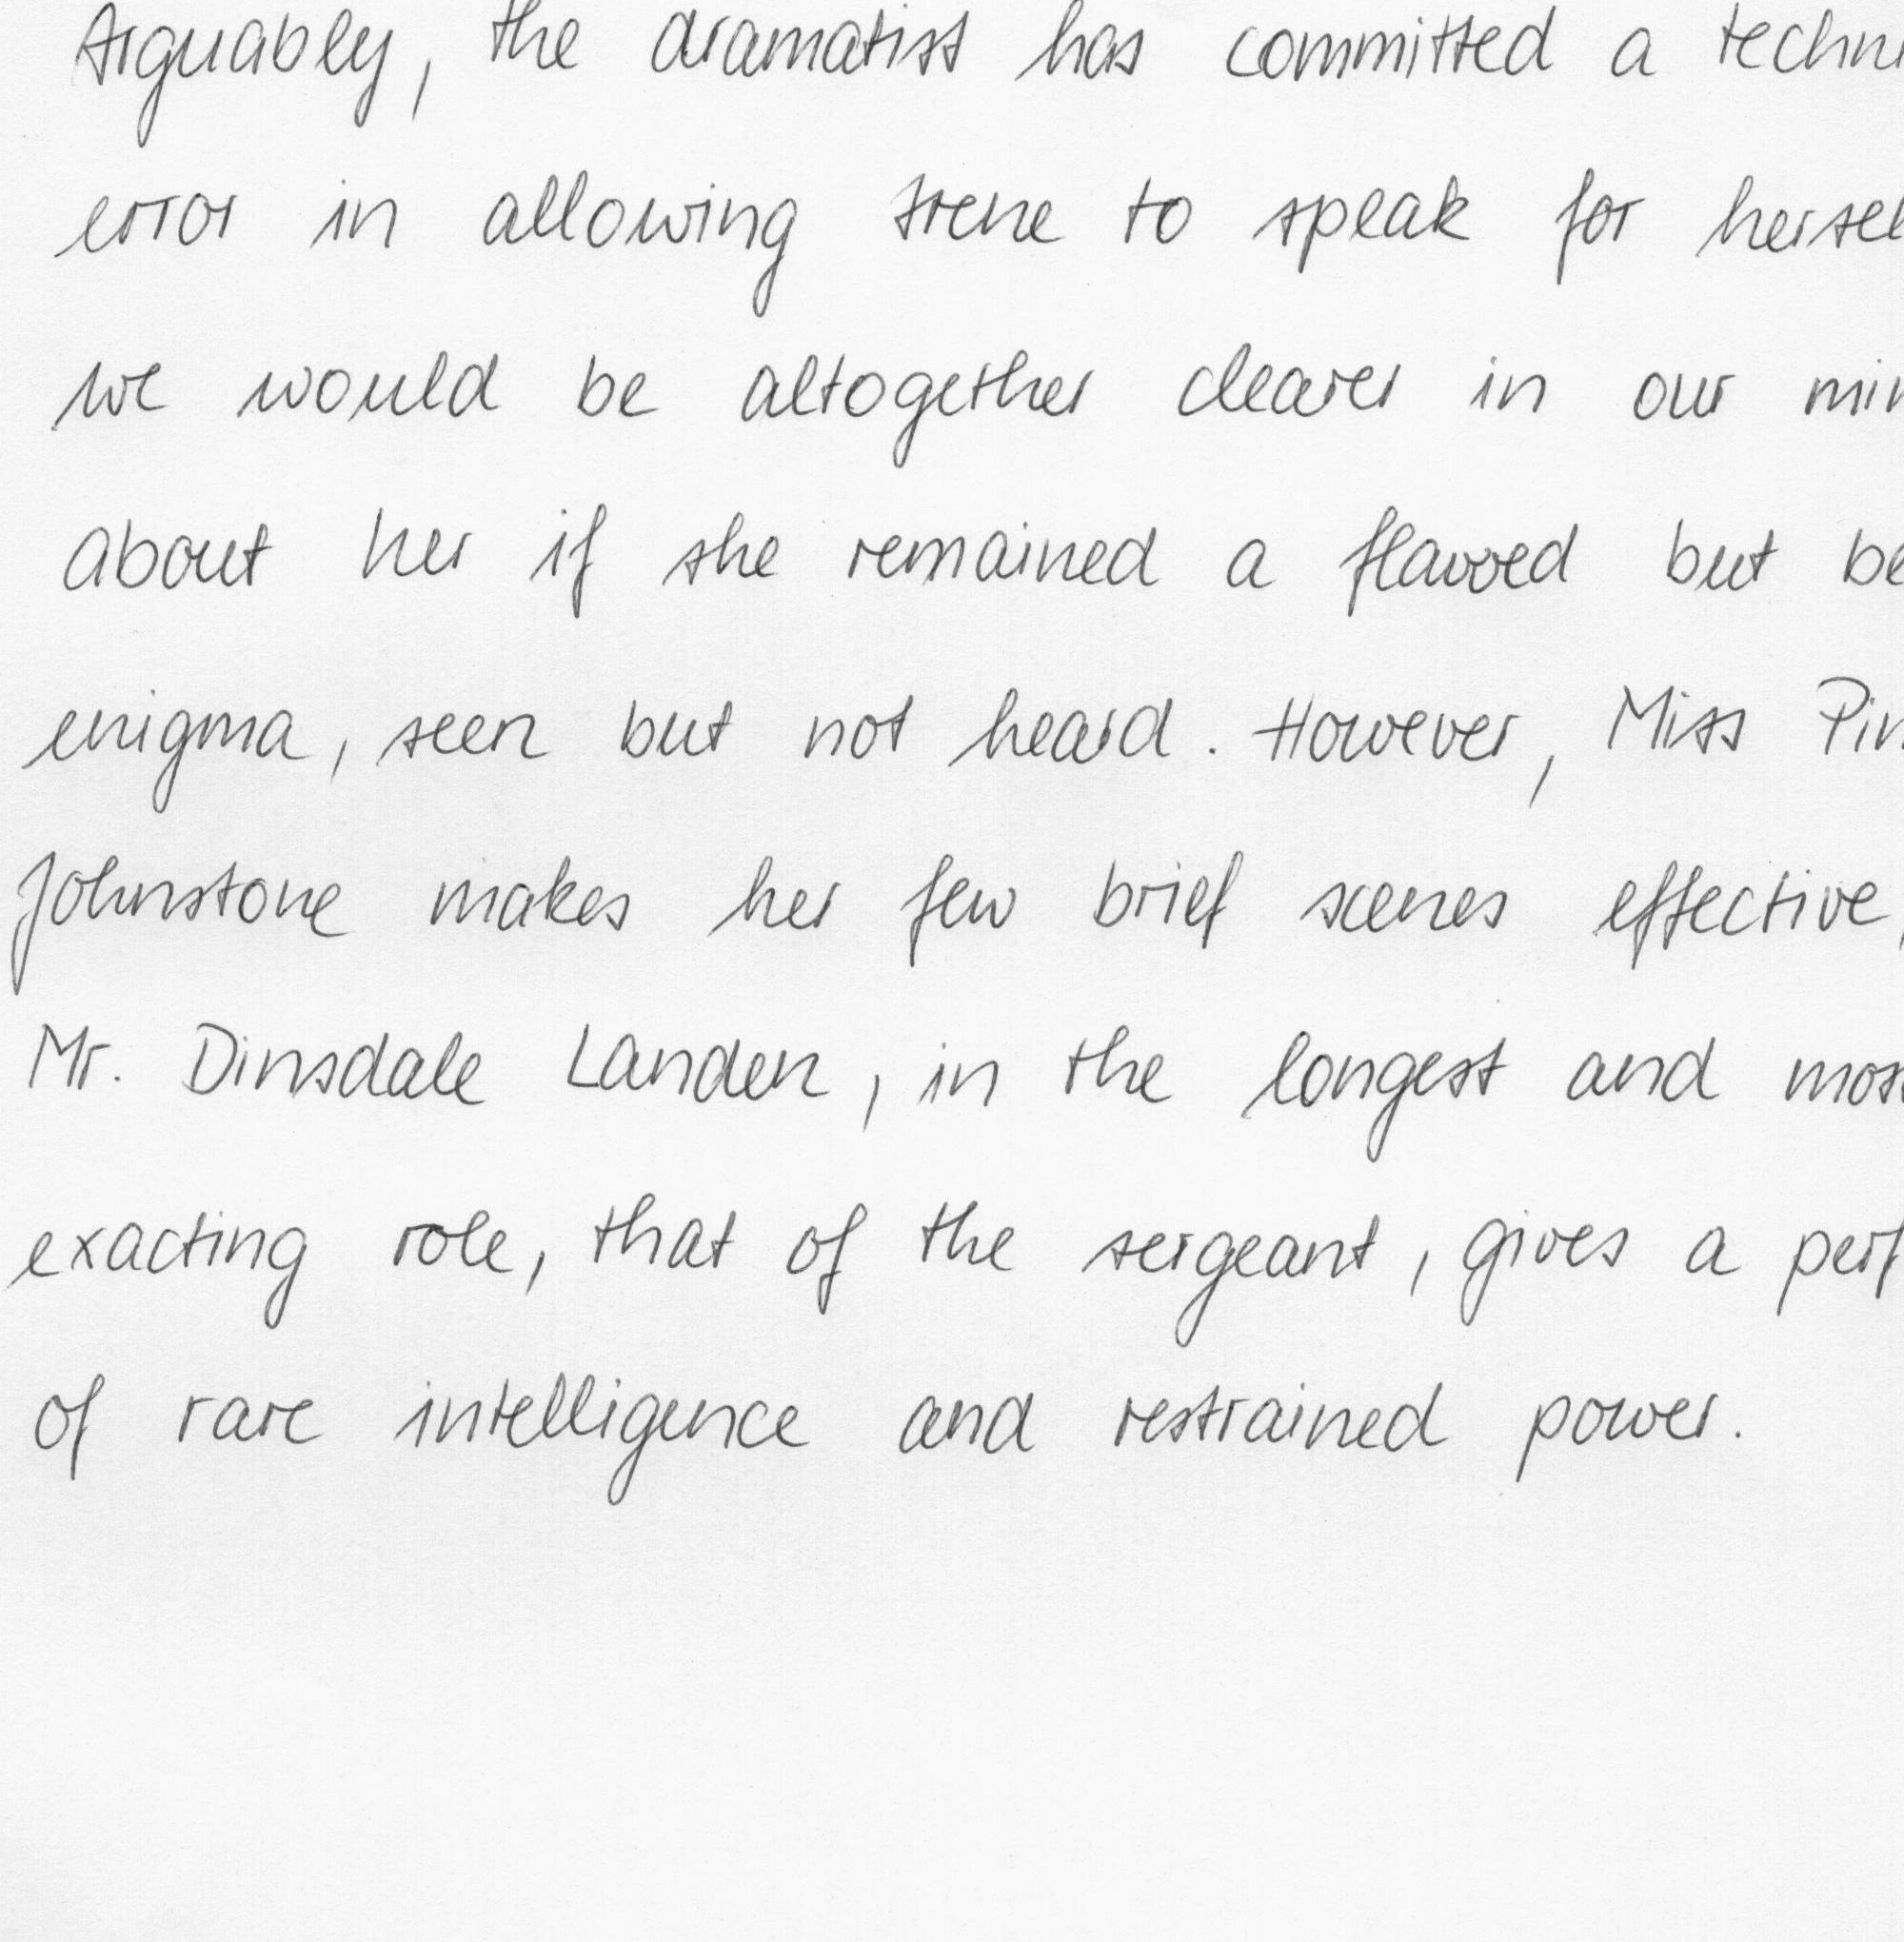 Arguably, the dramatist has committed a
error in allowing Irene to speak for
we would be altogether clearer in our
about her if she remained a flawed but
enigma, seen but not heard. However, Miss
Johnstone makes her few brief scenes effective,
Mr. Dinsdale Landen, in the longest and most
exacting role, that of the sergeant, gives a
of rare intelligence and restrained power.